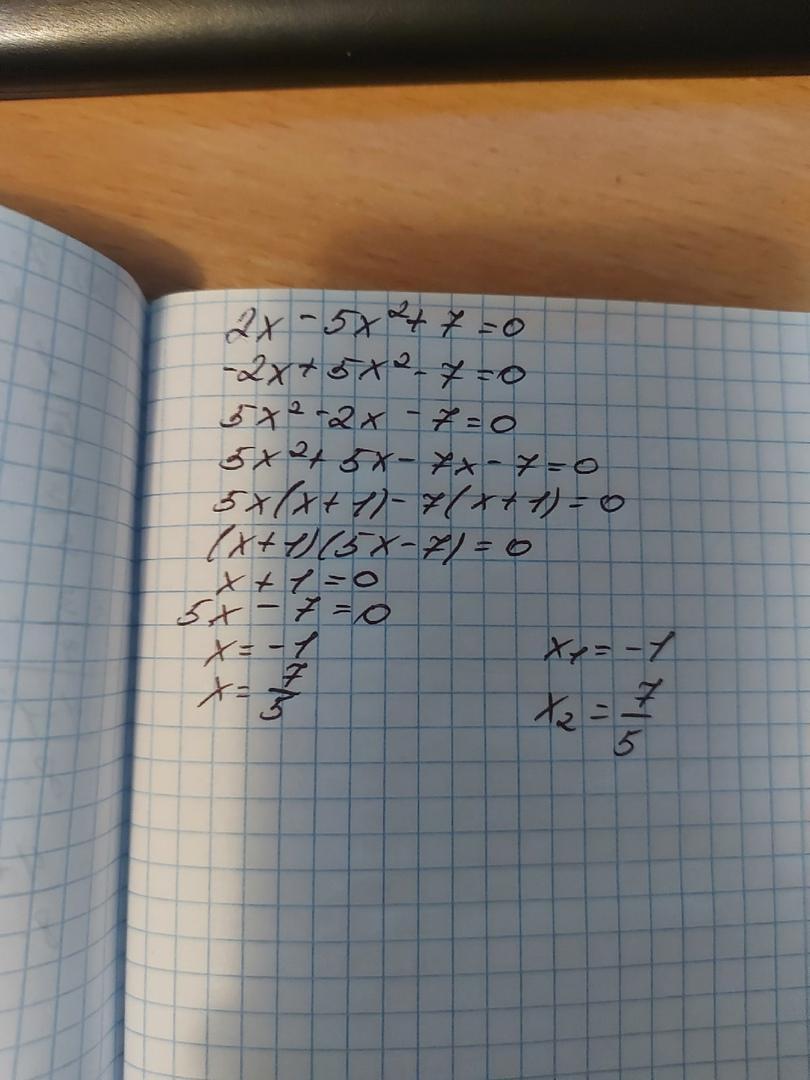 2x - 5x² + 7 = 0
-2x + 5x² - 7 = 0
5x² - 2x - 7 = 0
5x² + 5x - 7x - 7 = 0
5x(x + 1) - 7(x + 1) = 0
(x + 1)(5x - 7) = 0
x + 1 = 0
5x - 7 = 0
x = -1
x = 7/5
x₁ = -1
x₂ = 7/5